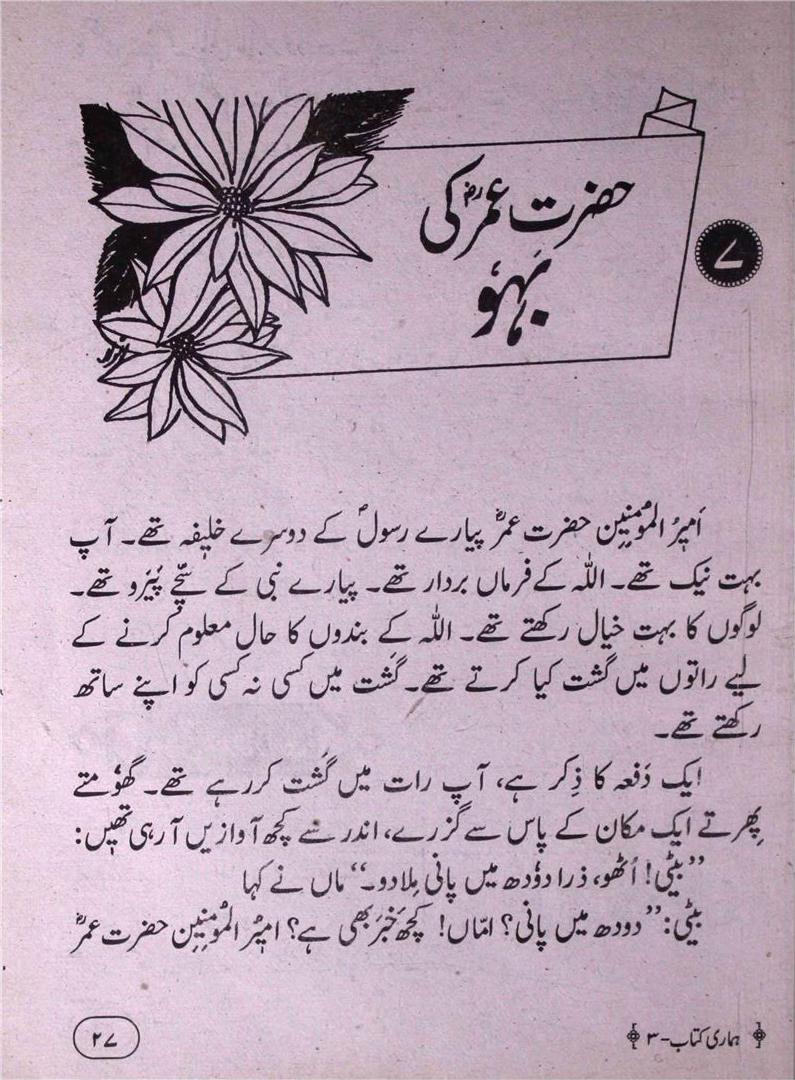 حضرت عمرؓ کی
بہو
۷
اَمِیرُ المؤمنین حضرت عمرؓ پیارے رسولؐ کے دوسرے خلیفہ تھے۔ آپ
بہت نیک تھے۔ اللہ کے فرماں بردار تھے۔ پیارے نبی کے سچّے پَیرو تھے۔
لوگوں کا بہت خیال رکھتے تھے۔ اللہ کے بندوں کا حال معلوم کرنے کے
لیے راتوں میں گشت کیا کرتے تھے۔ گشت میں کسی نہ کسی کو اپنے ساتھ
رکھتے تھے۔
ایک دَفعہ کا ذِکر ہے، آپ رات میں گَشت کررہے تھے۔ گھوٗمتے
پِھرتے ایک مکان کے پاس سے گزرے، اندر سے کچھ آوازیں آرہی تھیں:
’’بیٹی! اُٹھو، ذرا دوٗدھ میں پانی مِلادو۔‘‘ ماں نے کہا
بیٹی: ’’دودھ میں پانی؟ امّاں! کچھ خَبَر بھی ہے؟ امیرُ المؤمنین حضرت عمرؓ
ہماری کتاب-۳
۲۷